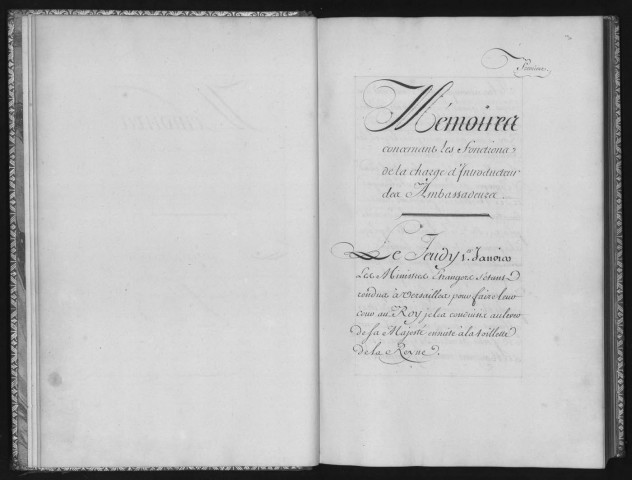 Janvier
Mémoires
concernant les Fonctions
de la charge d'Introducteur
des Ambassadeurs
Le Jeudy 1er Janvier
Les Ministres Etrangers s'étant
rendus à Versailles pour faire leur
cour au Roy je les conduisis au lever
de sa Majesté ensuite à la toillette
de la Reyne.